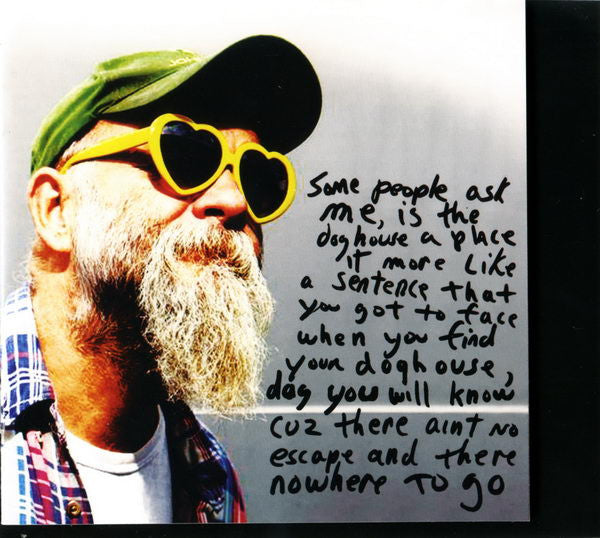 Some people ask
me, is the
doghouse a place
it more like
a sentence that
you got to face
when you find
your doghouse,
dog you will know
cuz there aint no
escape and there
nowhere to go